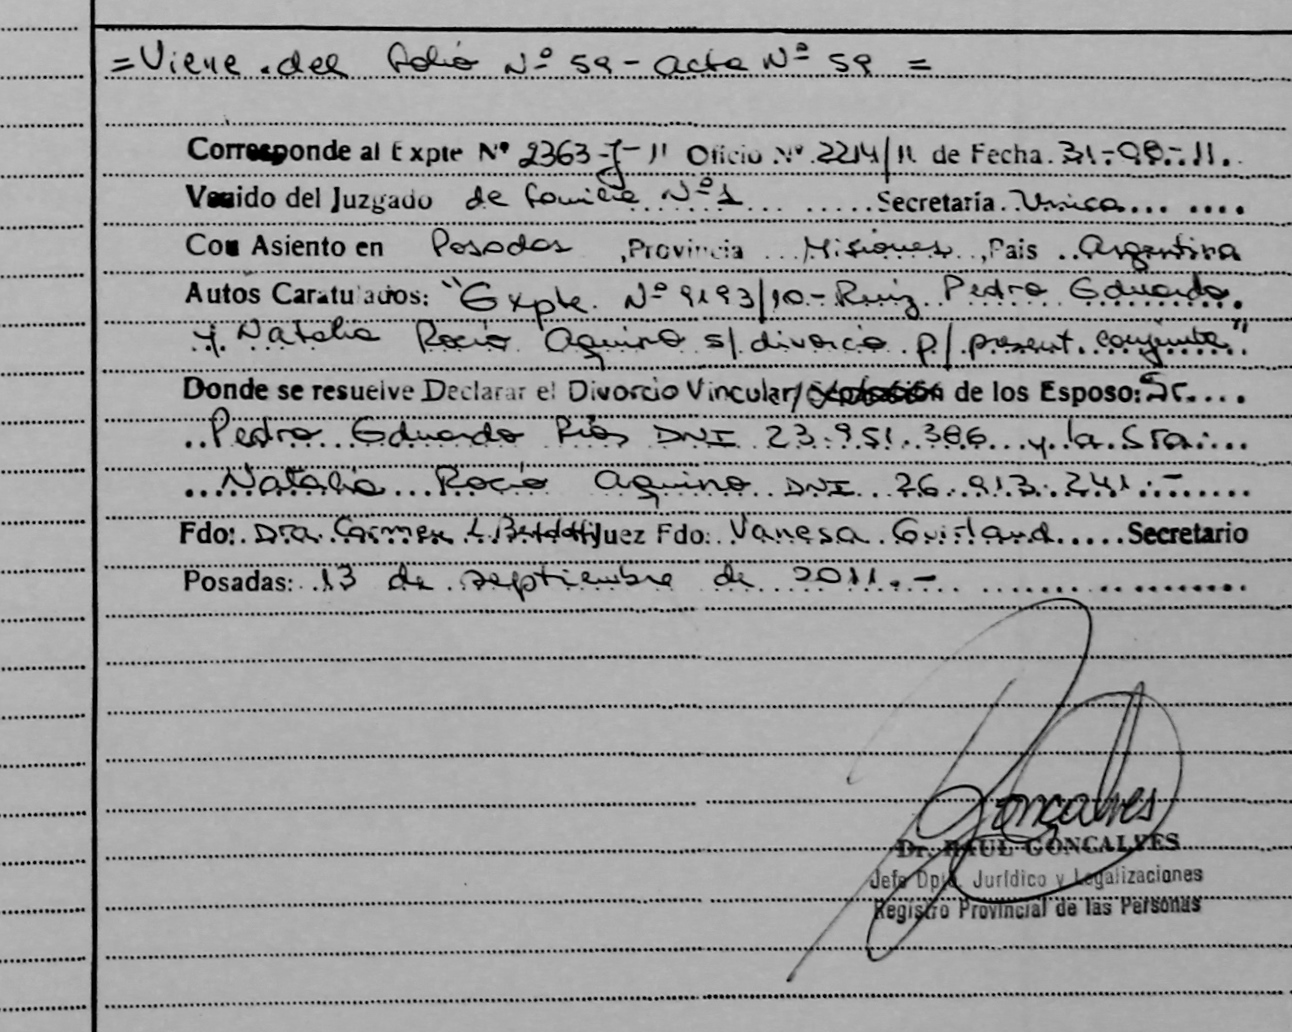 =Viene del folio Nº 59 - acta Nº 59 =
Corresponde al Expte Nº 2363-J-11 Oficio Nº 2214/11 de Fecha 31-08-11.
Venido del Juzgado de familia Nº 1 Secretaría Unica
Con Asiento en Posadas, Provincia Misiones, País Argentina
Autos Caratulados: "Expte. Nº 9193/10 - Ruiz Pedro Eduardo
y Natalia Rocio Aquino s/divorcio p/present. conjunta"
Donde se resuelve Declarar el Divorcio Vincular/ de los Esposo: Sr.
Pedro Eduardo DNI 23.951.386 y la Sra.
Natalia Rocio Aquino DNI 26.913.241.-
Fdo: Dra. Carmen Juez Fdo: Vanesa Secretario
Posadas: 13 de septiembre de 2011.-
Goncalves
Dr. RAUL GONCALVES
Jefe Dpto. Jurídico y Legalizaciones
Registro Provincial de las Personas